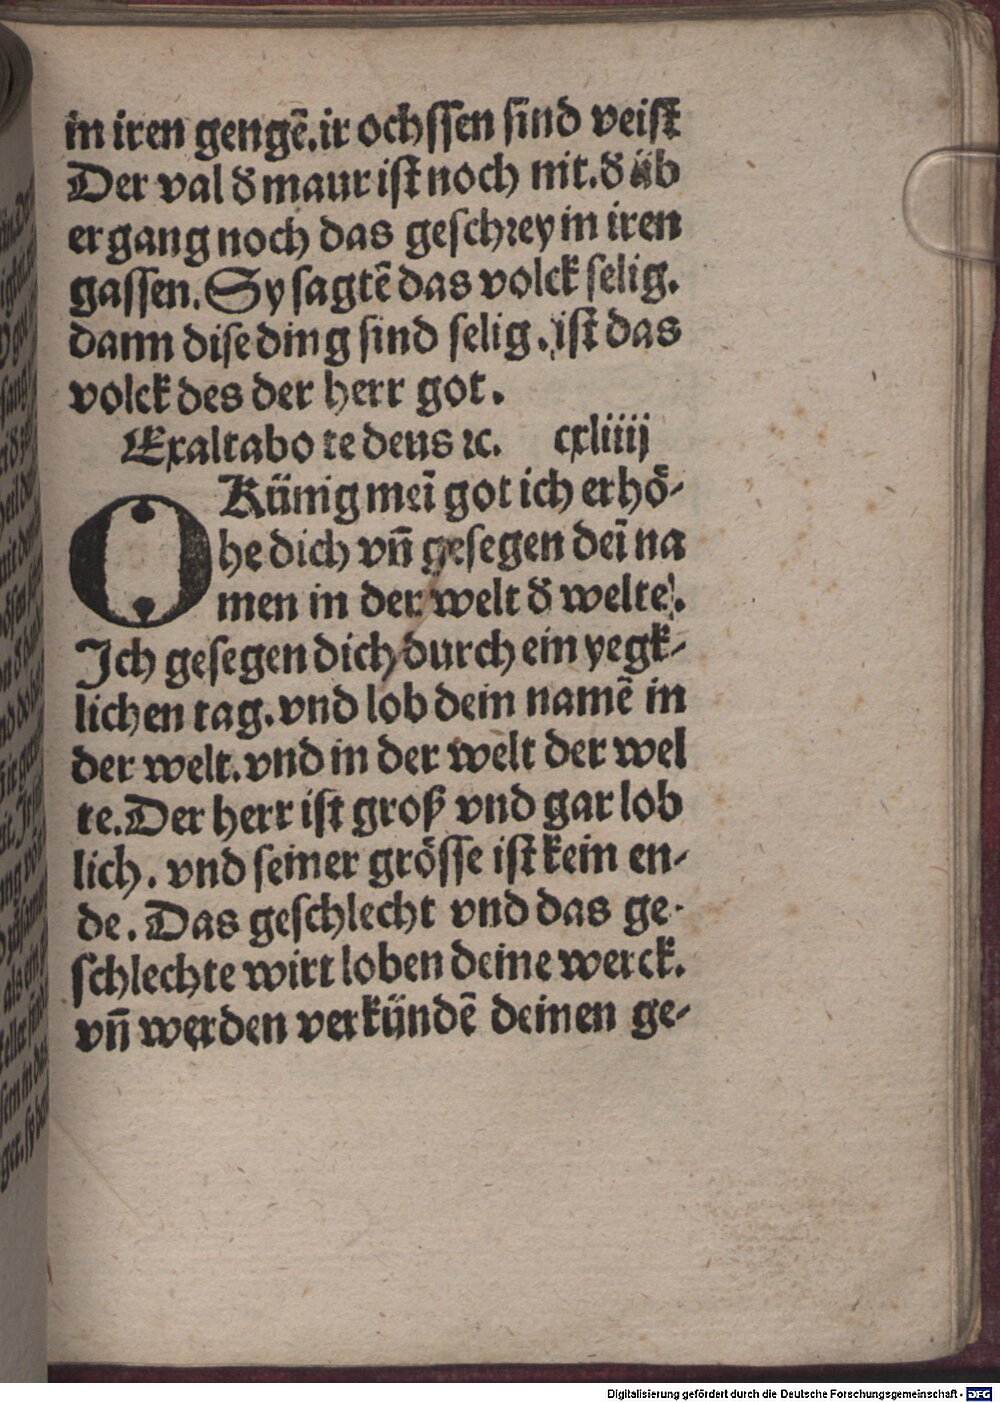 in iren gengē.ir ochssen sind veist
Der val đ maur ist noch nit.đ üb
er gang noch das geschrey in iren
gassen. Sy sagtē das volck selig.
dann dise ding sind selig. ist das
volck des der herr got.
Exaltabo te deus ꝛc. cxliiij
O Künig meī got ich erhö-
he dich vn̄ gesegen deī na
men in der welt đ welte.
Ich gesegen dich durch ein yegk-
lichen tag. vnd lob dein namē in
der welt. vnd in der welt der wel
te. Der herr ist groß vnd gar lob
lich. vnd seiner grösse ist kein en-
de. Das geschlecht vnd das ge-
schlechte wirt loben deine werck.
vn̄ werden verkündē deinen ge-
Digitalisierung gefördert durch die Deutsche Forschungsgemeinschaft - DFG